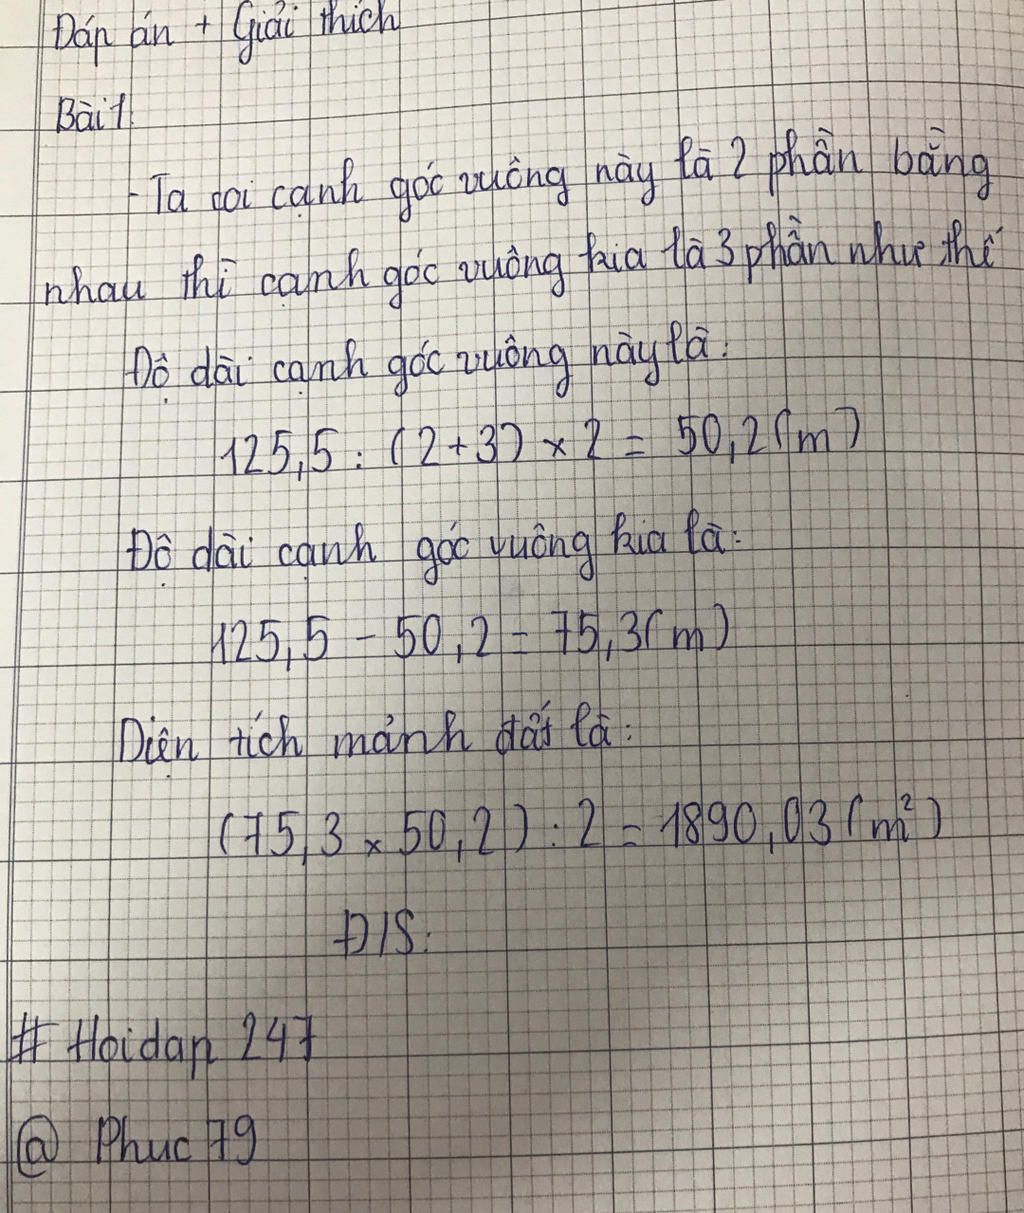 Đáp án + Giải thích
Bài 1
- Ta coi cạnh góc vuông này là 2 phần bằng
nhau thì cạnh góc vuông kia là 3 phần như thế
Độ dài cạnh góc vuông này là:
125,5 : (2+3) × 2 = 50,2 (m)
Độ dài cạnh góc vuông kia là:
125,5 - 50,2 = 75,3 (m)
Diện tích mảnh đất là:
(75,3 × 50,2) : 2 = 1890,03 (m²)
Đ/S:
# Hoidap 247
@ Phuc 79